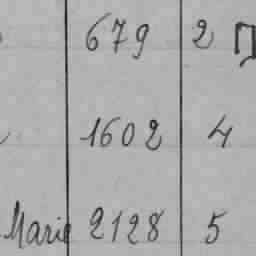 679 2
1602 4
Marie 2128 5